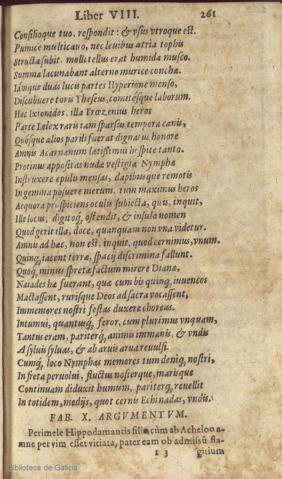 Liber VIII. 261
Consilioque tuo. respondit: & vsus vtroque est.
Pumice multicauo, nec leuibus atria tophis
Structa subit. mollit ellus erat humida musco.
Summa lacunabant alterno murice conchæ.
Iamque duas lucis partes Hyperione menso,
Discubuere toris Theseus, comitésque laborum.
Hac Ixionides. illa Trœzenius heros
Parte Lelex raris iam sparsus tempora canis,
Quósque alios parili fuerat dignatus honore
Amnis Acarnanum lætissimus hospite tanto.
Protinus appositas nudæ vestigia Nymphæ
Instruxere epulis mensas, dapibusque remotis
In gemma posuere merum. tum maximus heros
Aequora prospiciens oculis subiecta, quis, inquit,
Ille locus, digitoq; ostendit, & insula nomen
Quod gerit illa, doce, quanquam non vna videtur.
Amnis ad hæc, non est. inquit, quod cernimus, vnum.
Quinq; iacent terræ, spacij discrimina fallunt.
Quoq; minus spretæ factum mirere Dianæ,
Naiades hæ fuerant, quæ cum bis quinq; iuuencos
Mactassent, rurisque Deos ad sacra vocassent,
Immemores nostri festas duxere choreas.
Intumui, quantusq; feror, cum plurimus vnquam,
Tantus eram, pariterq; animis immanis, & vndis
A syluis syluas, & ab aruis arua reuulsi.
Cumq; loco Nymphas memores tum denig, nostri,
In freta peruolui. fluctus nosterque, marisque
Continuam diduxit humum, pariterq; reuellit
In totidem, medijs, quot cernis Echinadas, vndis.
FAB. X. ARGVMENTVM.
Perimele Hippodamantis filia cùm ab Acheloo a-
mne per vim esset vitiata, pater eam ob admissū fla-
l 3 gitium
Biblioteca de Galicia